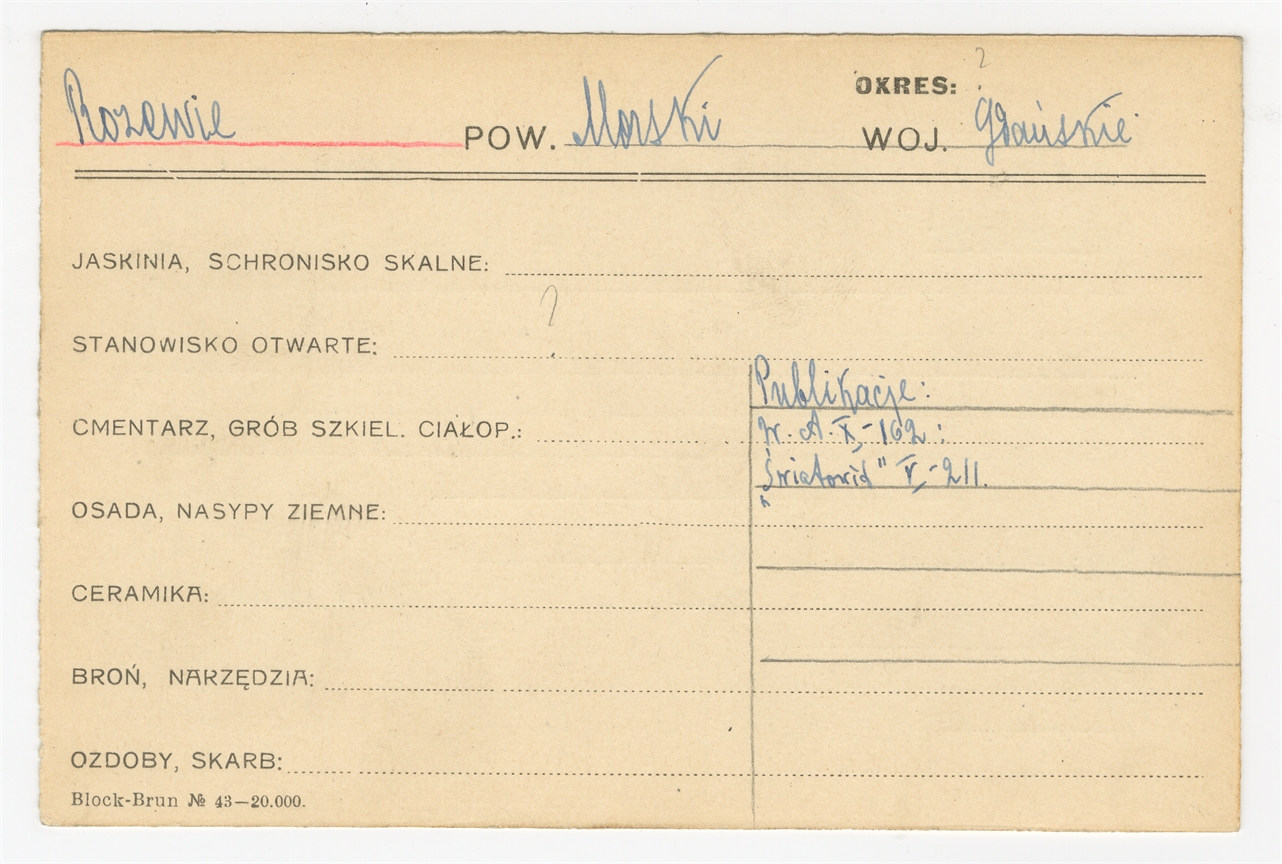 OKRES: ?
Rozewie POW. Morski WOJ. Gdańskie
JASKINIA, SCHRONISKO SKALNE:
?
STANOWISKO OTWARTE:
Publikacje:
CMENTARZ, GRÓB SZKIEL. CIAŁOP.:
W. A. X, - 162 :
„Światowid" V, - 211.
OSADA, NASYPY ZIEMNE:
CERAMIKA:
BROŃ, NARZĘDZIA:
OZDOBY, SKARB:
Block-Brun № 43—20.000.